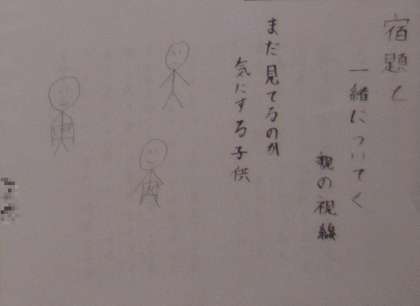 宿題と
一緒についてく
親の視線
まだ見てるのか
気にする子供